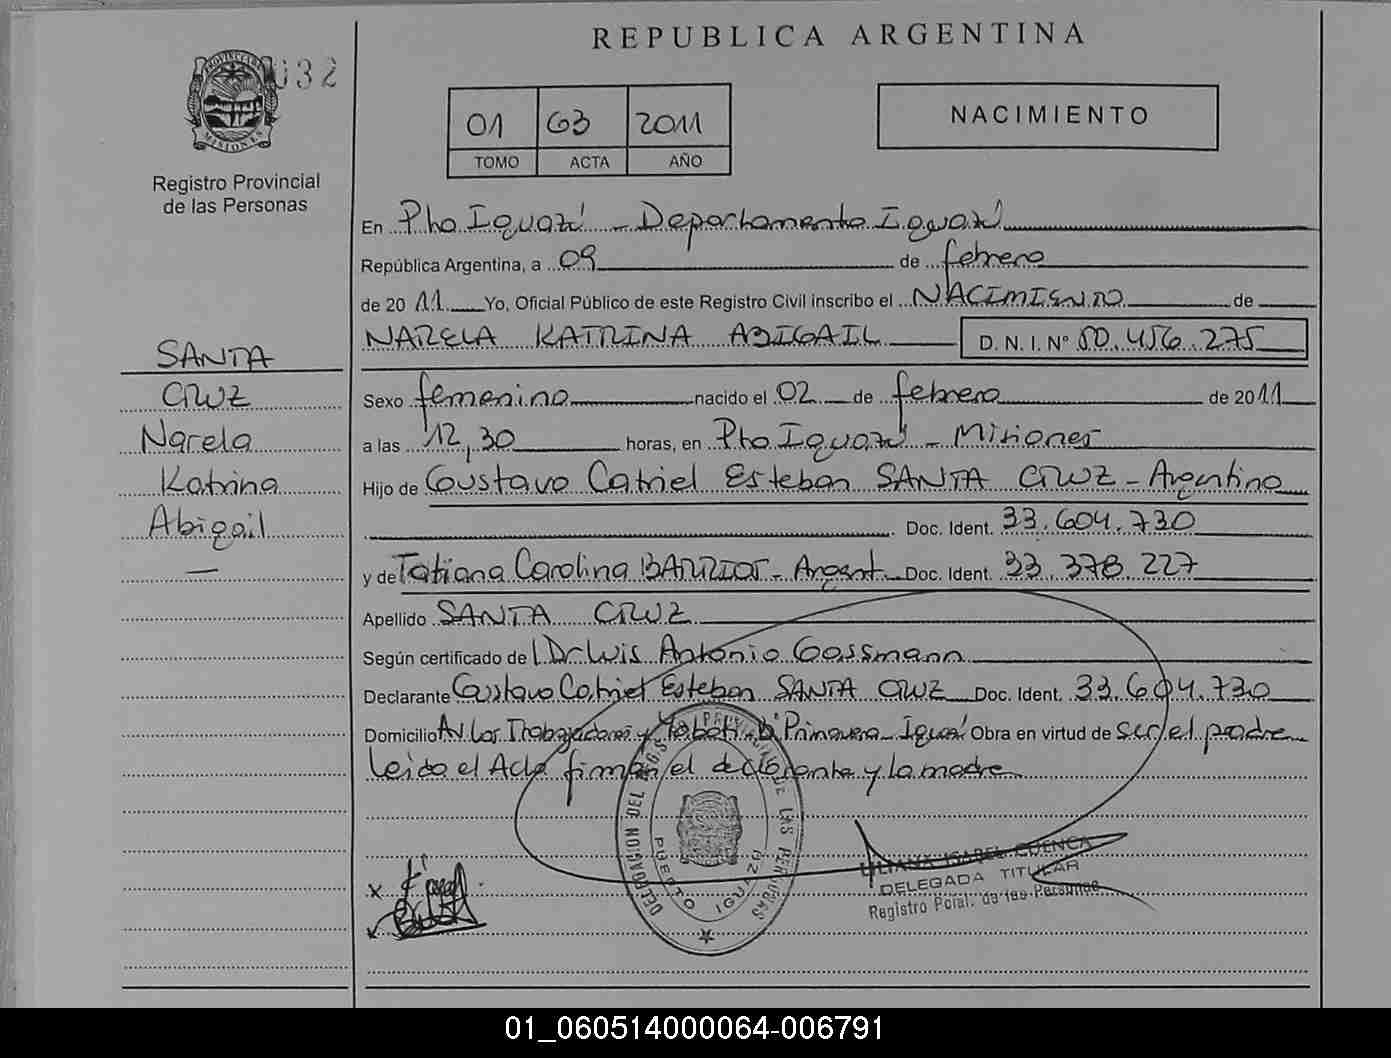 REPUBLICA ARGENTINA
032
PROVINCIA DE MISIONES
Registro Provincial
de las Personas
01 63 2011
TOMO ACTA AÑO
NACIMIENTO
En Pto Iguazú - Departamento Iguazú
República Argentina, a 09 de febrero
de 2011 Yo, Oficial Público de este Registro Civil inscribo el NACIMIENTO de
NARELA KATRINA ABIGAIL D. N. I. Nº 50.456.275
SANTA
CRUZ
Narela
Katrina
Abigail
—
Sexo femenino nacido el 02 de febrero de 2011
a las 12,30 horas, en Pto Iguazú - Misiones
Hijo de Gustavo Catriel Esteban SANTA CRUZ - Argentino
Doc. Ident. 33.604.730
y de Tatiana Carolina BARRIOS - Argent. Doc. Ident. 33.378.227
Apellido SANTA CRUZ
Según certificado de Dr Luis Antonio Gassmann
Declarante Gustavo Catriel Esteban SANTA CRUZ Doc. Ident. 33.604.730
Domicilio Av Los Trabajadores y Yaboti Bº Primavera - Iguazú Obra en virtud de ser el padre
Leido el Acta firman el declarante y la madre
DELEGACION DEL REG. PROVINCIAL DE LAS PERSONAS
PUERTO IGUAZU
LILIANA ISABEL CUENCA
DELEGADA TITULAR
Registro Pcial. de las Personas
01_060514000064-006791